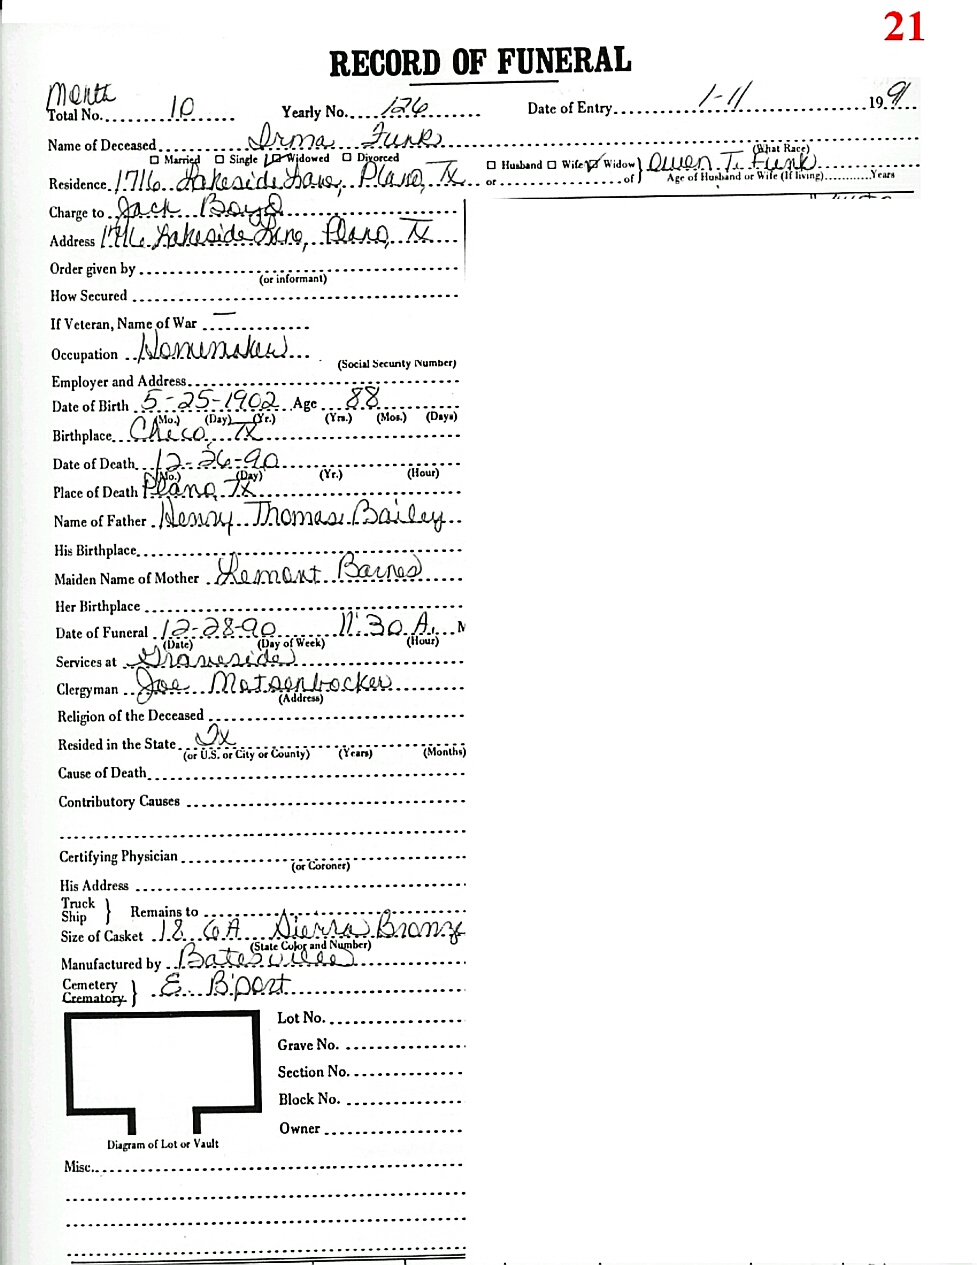 21
RECORD OF FUNERAL
Month
Total No. 10 Yearly No. 126 Date of Entry 1-11 1991
Name of Deceased Irma Funk (What Race)
Married Single Widowed Divorced Husband Wife Widow Owen T. Funk
Residence 1716 Lakeside Lane, Plano, Tx or of Age of Husband or Wife (If living) Years
Charge to Jack Boyd
Address 1716 Lakeside Lane, Plano, Tx
Order given by
(or informant)
How Secured
If Veteran, Name of War —
Occupation Homemaker
(Social Security Number)
Employer and Address
Date of Birth 5-25-1902 Age 88
(Mo.) (Day) (Yr.) (Yrs.) (Mos.) (Days)
Birthplace Chico, Tx
Date of Death 12-26-90
(Mo.) (Day) (Yr.) (Hour)
Place of Death Plano, Tx
Name of Father Henry Thomas Bailey
His Birthplace
Maiden Name of Mother Barnes
Her Birthplace
Date of Funeral 12-28-90 11:30 A. M
(Date) (Day of Week) (Hour)
Services at Graveside
Clergyman Joe Matsenbocker
(Address)
Religion of the Deceased
Resided in the State Tx
(or U.S. or City or County) (Years) (Months)
Cause of Death
Contributory Causes
Certifying Physician
(or Coroner)
His Address
Truck
Ship } Remains to
Size of Casket 18 GA Sierra Bronze
(State Color and Number)
Manufactured by Batesville
Cemetery
Crematory } E. B'port
Lot No.
Grave No.
Section No.
Block No.
Owner
Diagram of Lot or Vault
Misc.